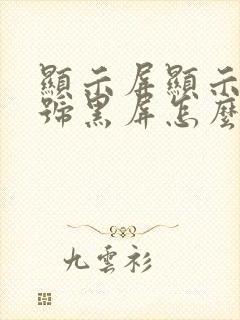 顯示屏顯示
號黑屏怎麼
九雲衫